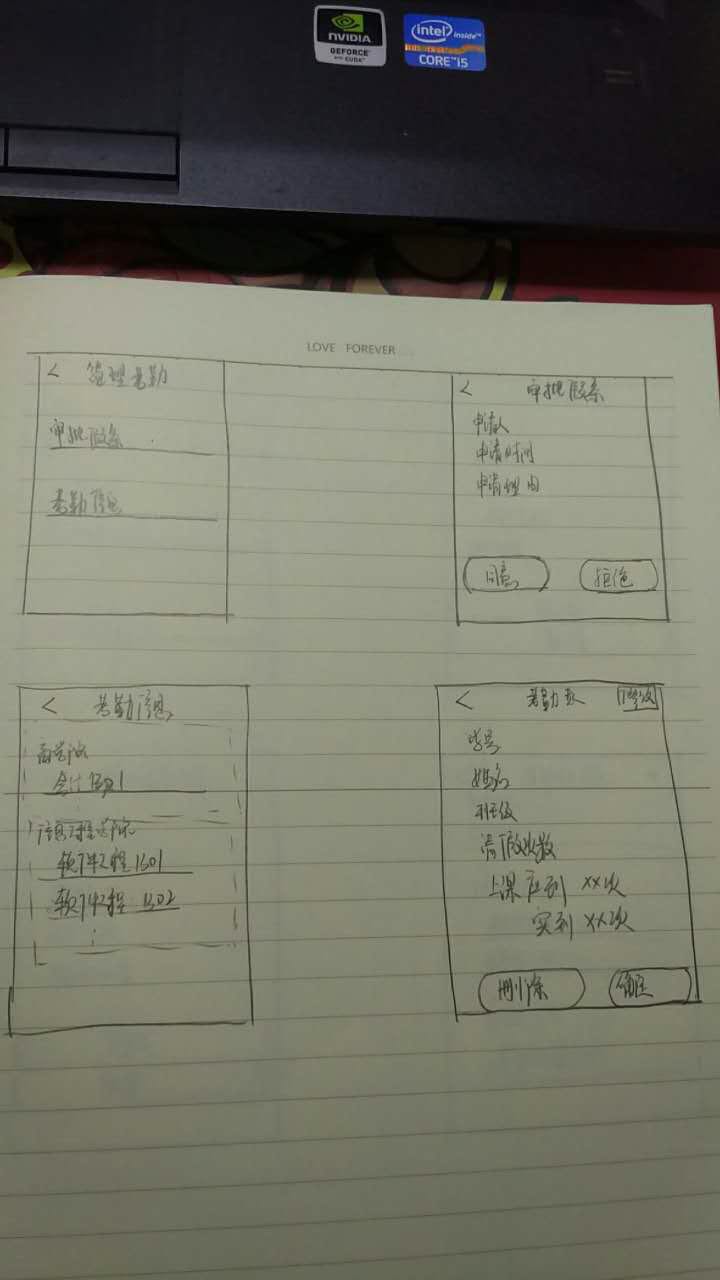 NVIDIA
GEFORCE
with CUDA
intel inside™
CORE™i5
LOVE FOREVER
< 管理考勤
审批假条
考勤信息
< 审批假条
申请人
申请时间
申请理由
同意
拒绝
< 考勤信息
商学院
会计1501
信息工程学院
软件工程1501
软件工程1502
< 考勤表 修改
学号
姓名
班级
请假次数
上课应到 XX次
实到 XX次
删除
确定